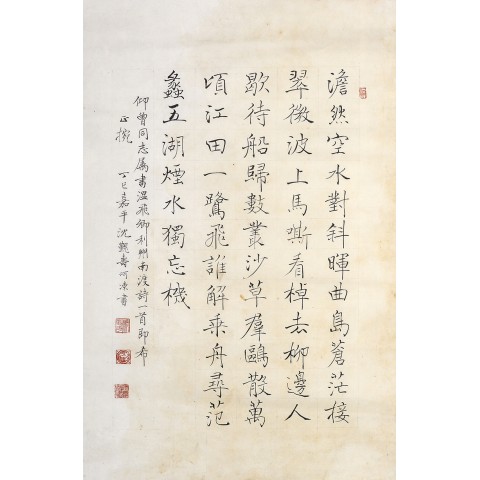 澹然空水對斜暉曲島蒼茫接
翠微波上馬嘶看棹去柳邊人
歇待船歸數叢沙草羣鷗散萬
頃江田一鷺飛誰解乘舟尋范
蠡五湖煙水獨忘機
仰曾同志屬書溫飛卿利州南渡詩一首即希
正捥 丁巳嘉平沈覲壽呵凍書